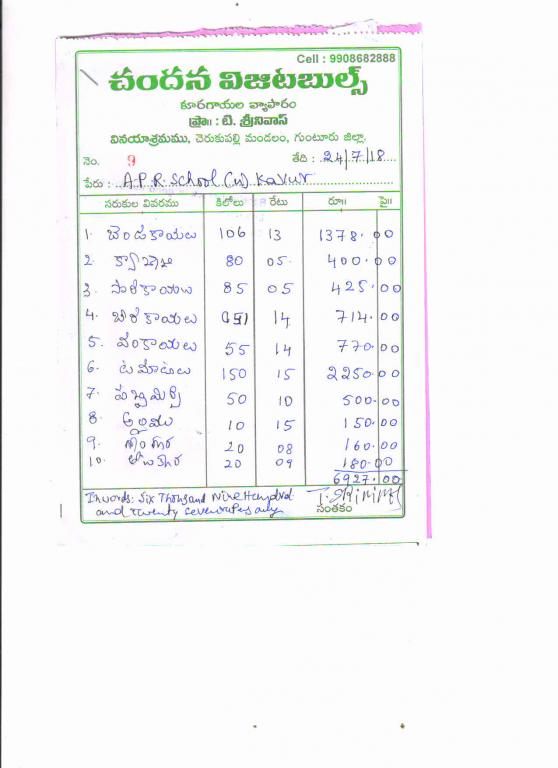 Cell : 9908682888
చందన విజిటబుల్స్
కూరగాయల వ్యాపారం
ప్రొ॥ : టి. శ్రీనివాస్
వినయాశ్రమము, చెరుకుపల్లి మండలం, గుంటూరు జిల్లా.
నెం. 9 తేది : 24/7/18
పేరు : A.P.R. School (u) Kavur
సరుకుల వివరము కిలోలు రేటు రూ॥ పై॥
1. బెండకాయలు 106 13 1378.00
2. 80 05. 400.00
3. 85 05 425.00
4. బీరకాయలు 14 714.00
5. వంకాయలు 55 14 770.00
6. టమోటలు 150 15 2250.00
7. పచ్చిమిర్చి 50 10 500.00
8. అల్లము 10 15 150.00
9. 20 08 160.00
10. 20 09 180.00
6927.00
Inwords: Six Thousand Nine Hundred
and twenty seven
సంతకం